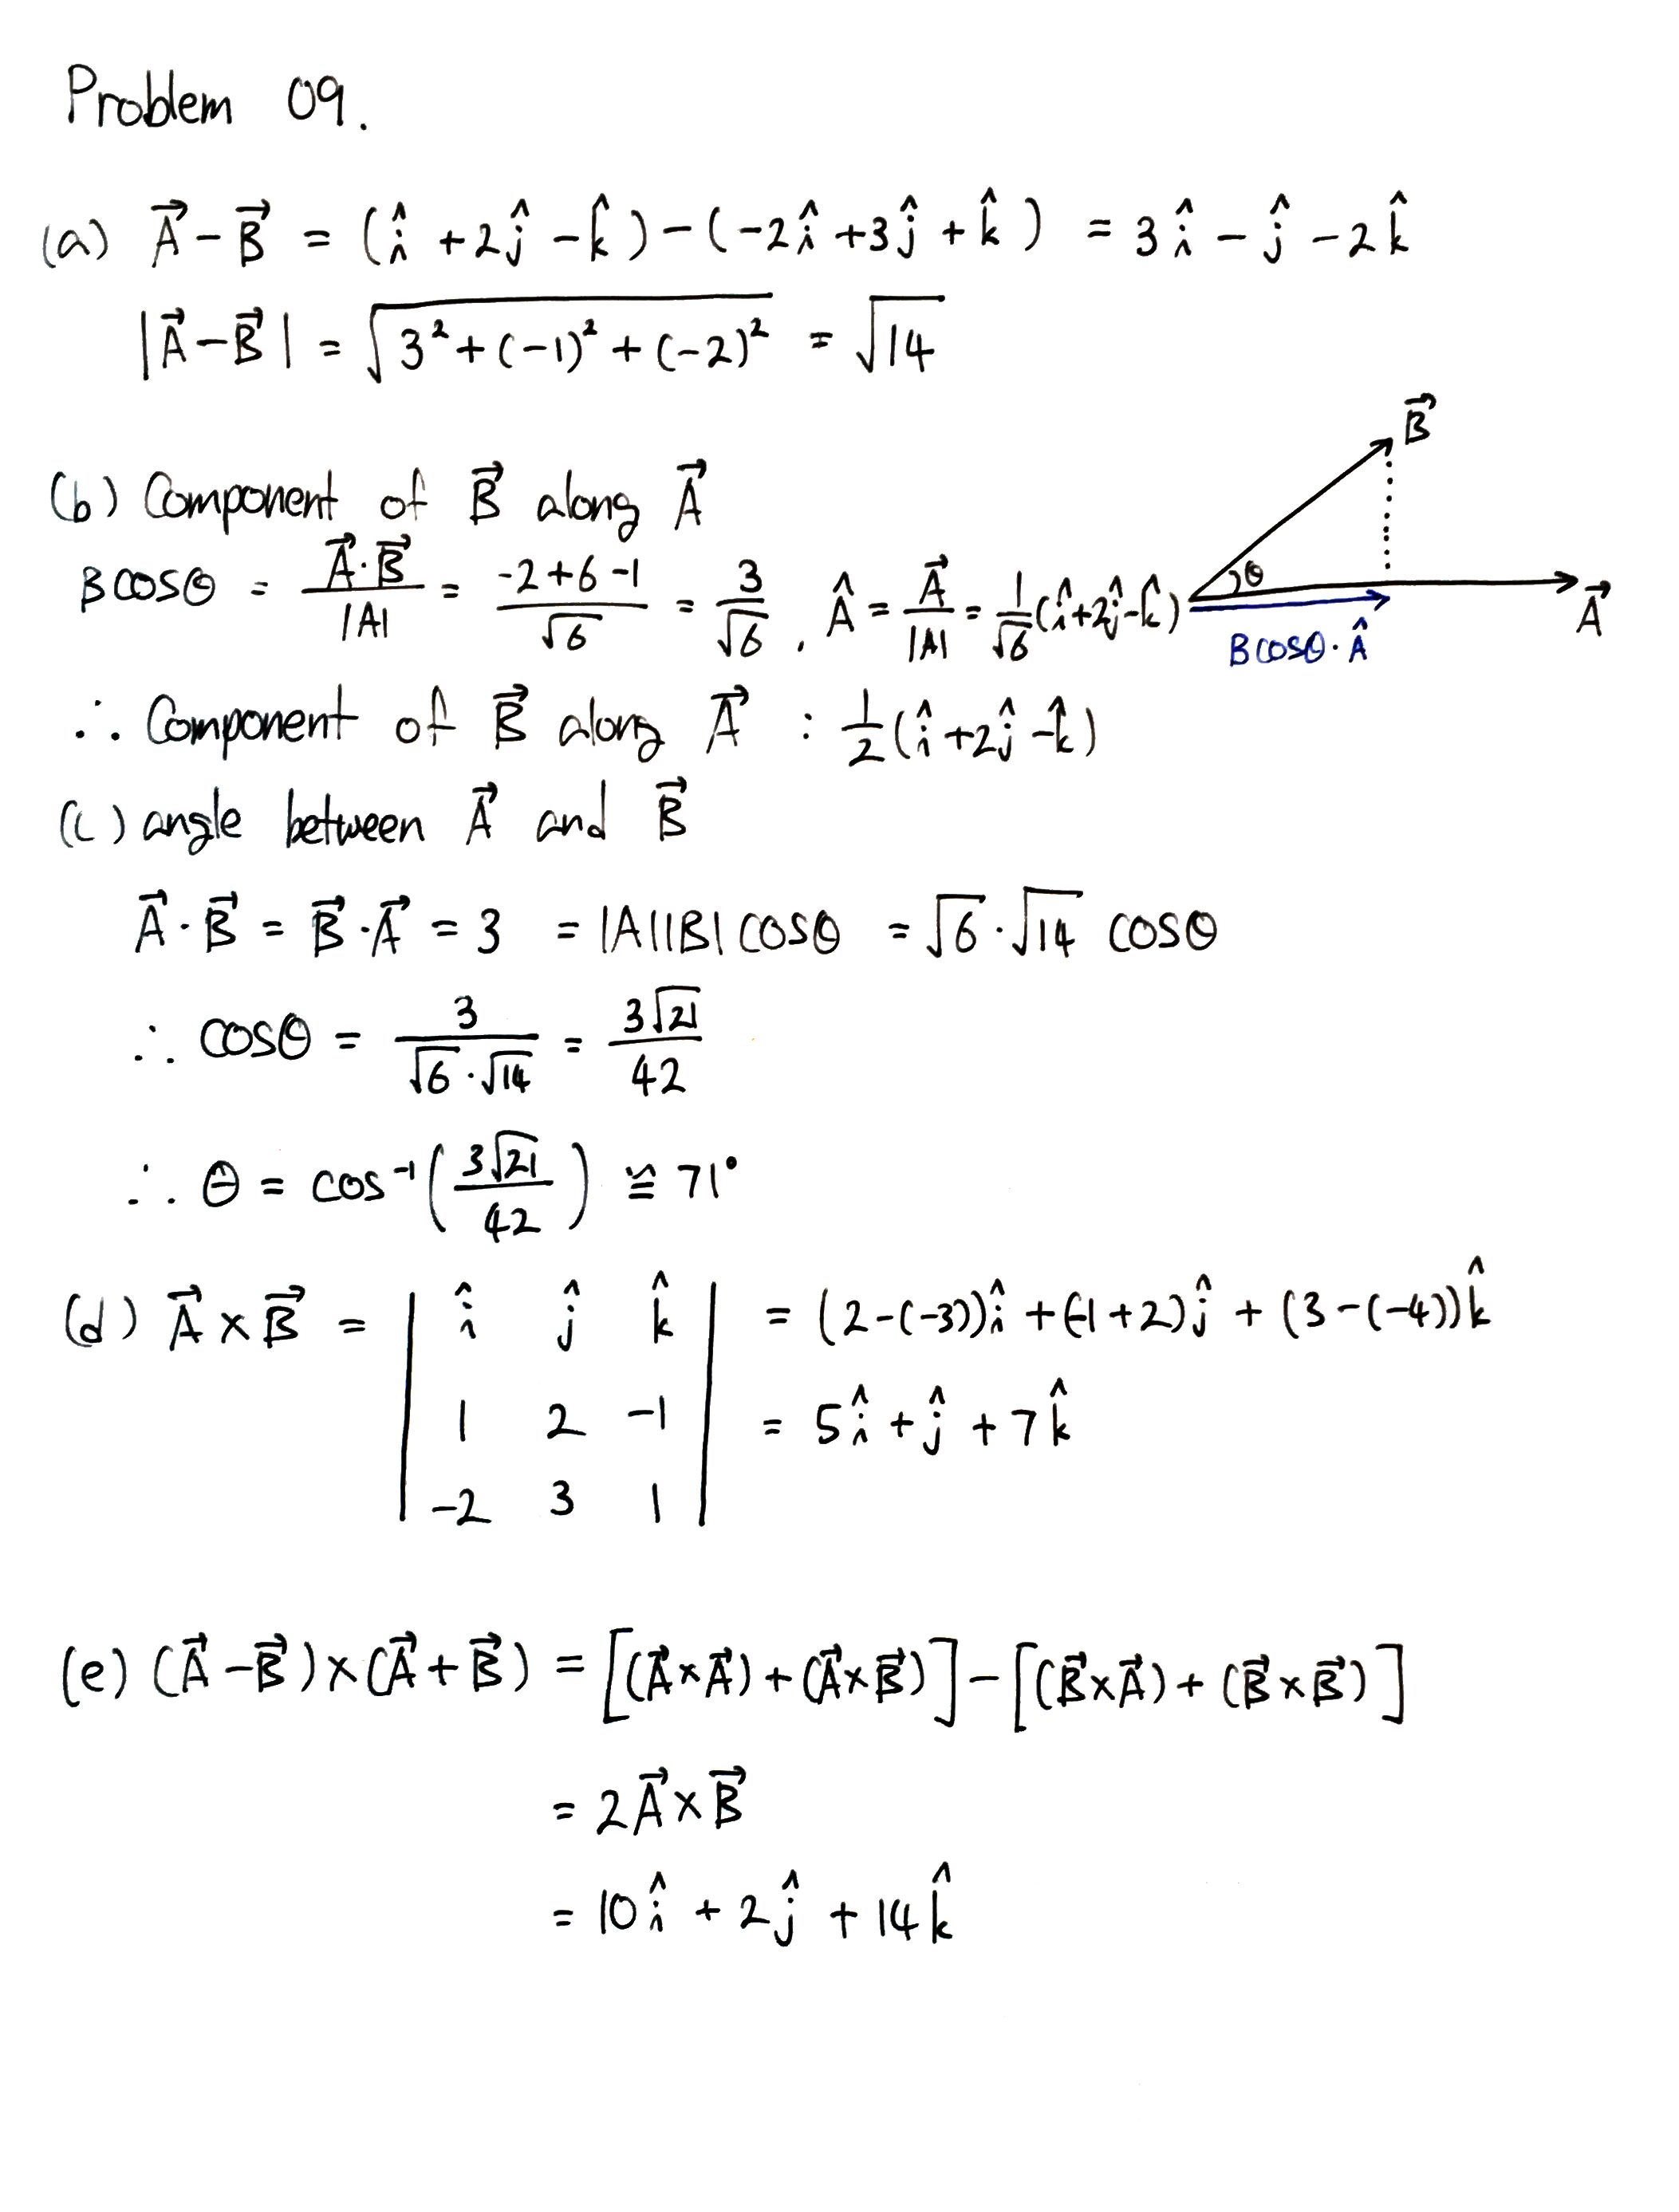 Problem 09.
(a) A⃗ − B⃗ = (î + 2ĵ − k̂) − (−2î + 3ĵ + k̂) = 3î − ĵ − 2k̂
|A⃗ − B⃗| = √(3² + (−1)² + (−2)²) = √14
B⃗
(b) Component of B⃗ along A⃗
B cosθ = A⃗·B⃗ / |A| = (−2+6−1) / √6 = 3/√6 , Â = A⃗/|A| = 1/√6 (î+2ĵ−k̂)
θ
A⃗
B cosθ · Â
∴ Component of B⃗ along A⃗ : 1/2 (î + 2ĵ − k̂)
(c) angle between A⃗ and B⃗
A⃗·B⃗ = B⃗·A⃗ = 3 = |A||B| cosθ = √6 · √14 cosθ
∴ cosθ = 3 / (√6 · √14) = 3√21 / 42
∴ θ = cos⁻¹(3√21 / 42) ≅ 71°
(d) A⃗ × B⃗ = | î ĵ k̂ | = (2−(−3))î + (−1+2)ĵ + (3−(−4))k̂
1 2 −1 = 5î + ĵ + 7k̂
−2 3 1
(e) (A⃗ − B⃗) × (A⃗ + B⃗) = [(A⃗×A⃗) + (A⃗×B⃗)] − [(B⃗×A⃗) + (B⃗×B⃗)]
= 2A⃗ × B⃗
= 10î + 2ĵ + 14k̂